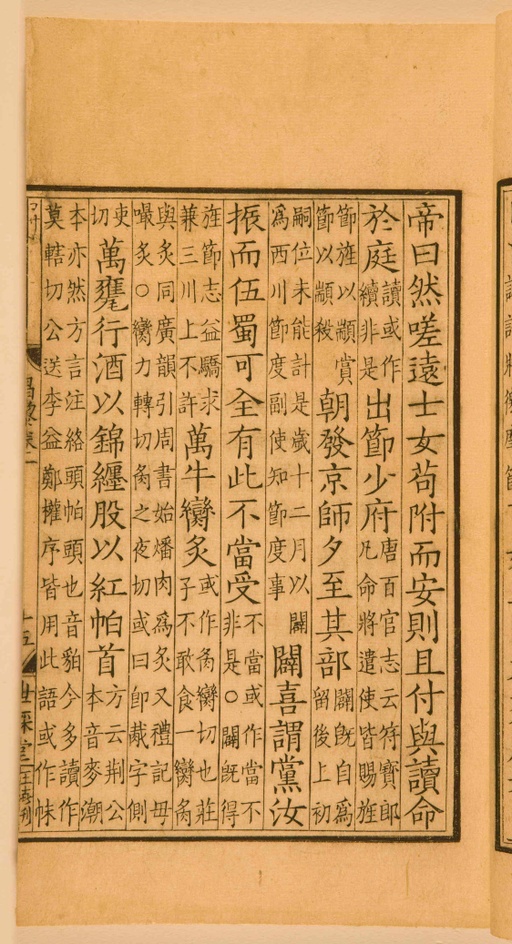 帝曰然嗟遠士女苟附而安則且付與讀命
於庭讀或作續非是出節少府唐百官志云符寶郎凡命將遣使皆賜旌
節旌以顓賞節以顓殺朝發京師夕至其部闢旣自爲留後上初
嗣位未能討是歲十二月以闢爲西川節度副使知節度事闢喜謂黨汝
振而伍蜀可全有此不當受不當或作當不非是○闢旣得
旌節志益驕求兼三川上不許萬牛臠炙或作臠切也莊子不敢食一臠
與炙同廣韻引周書始燔肉爲炙又禮記毋嘬炙○臠力轉切之夜切或曰卽胾字側
吏切萬甕行酒以錦纒股以紅帕首方云荆公本音麥潮
本亦然方言注絡頭帕頭也音貊今多讀作莫轄切公送李益鄭權序皆用此語或作帓
昌黎卷一
十五
世綵堂